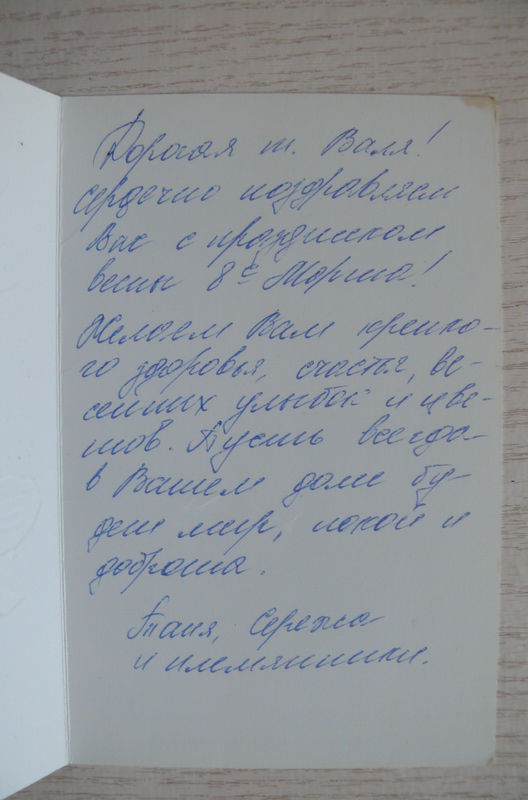 Дорогая т. Валя!
Сердечно поздравляем
Вас с праздником
весны 8е Марта!
Желаем Вам крепко-
го здоровья, счастья, ве-
сенних улыбок и цве-
тов. Пусть всегда
в Вашем доме бу-
дет мир, покой и
доброта.
Таня, Сережа
и племянники.